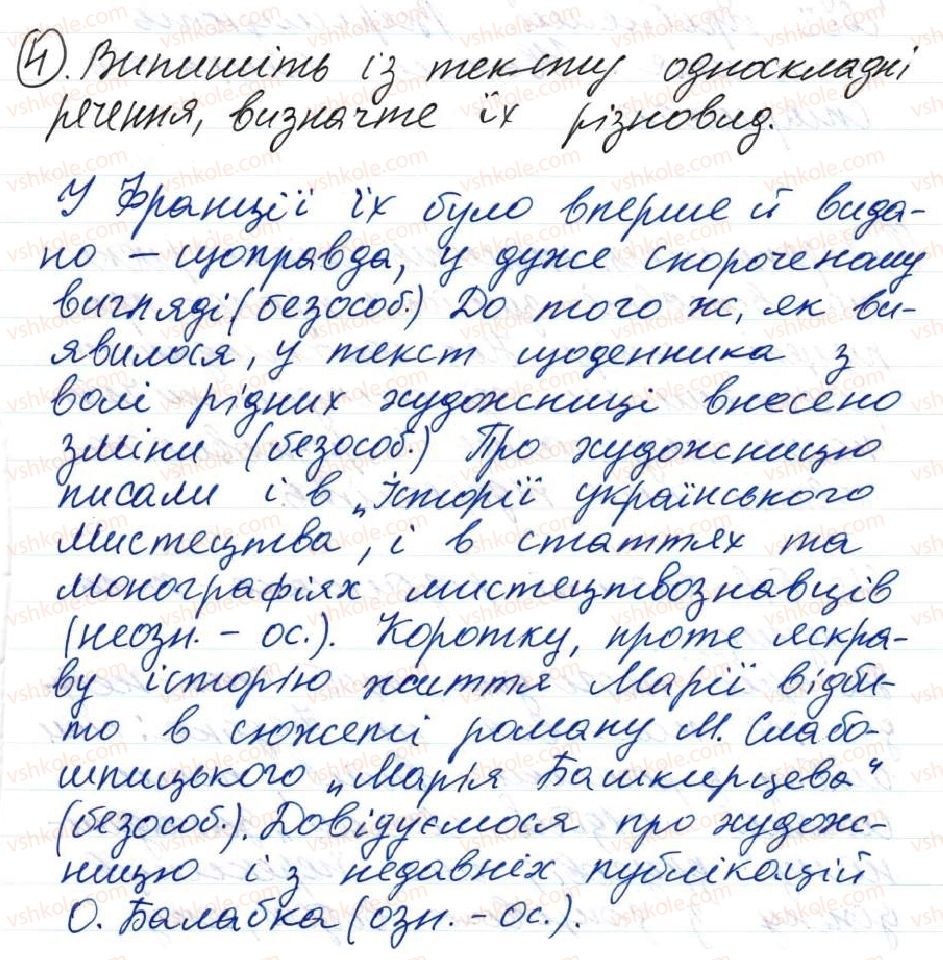 4. Випишіть із тексту односкладні
речення, визначте їх різновид.
У Франції їх було вперше й вида-
но – щоправда, у дуже скороченому
вигляді (безособ.) До того ж, як ви-
явилося, у текст щоденника з
волі рідних художниці внесено
зміни (безособ.) Про художницю
писали і в „Історії українського
мистецтва, і в статтях та
монографіях мистецтвознавців
(неозн. - ос.). Коротку, проте яскра-
ву історію життя Марії відби-
то в сюжеті роману М. Слабо-
шпицького „Марія Башкирцева"
(безособ.). Довідуємося про худож-
ницю із недавніх публікацій
О. Балабка (озн. - ос.).